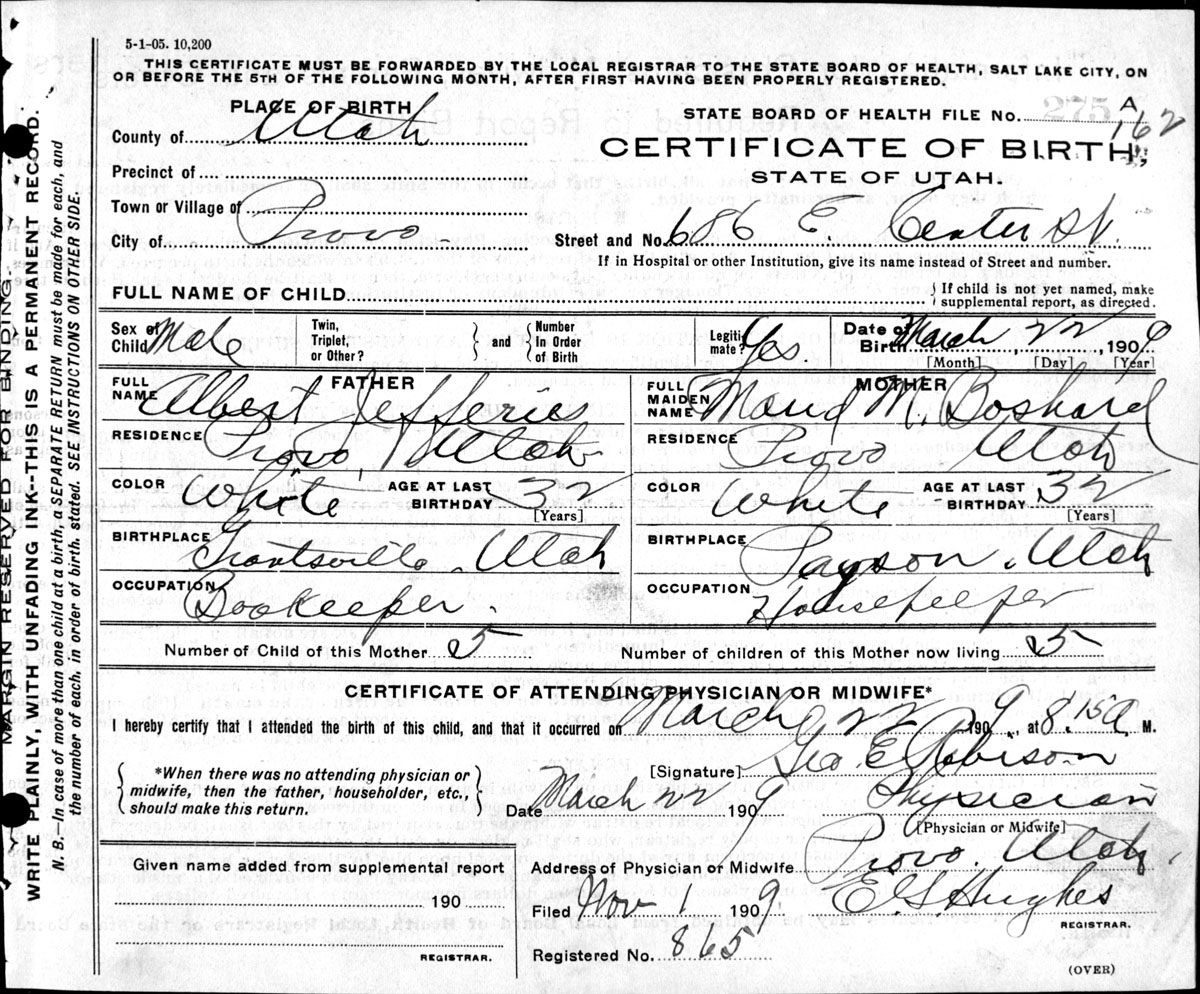 5-1-05. 10,200
THIS CERTIFICATE MUST BE FORWARDED BY THE LOCAL REGISTRAR TO THE STATE BOARD OF HEALTH, SALT LAKE CITY, ON
OR BEFORE THE 5TH OF THE FOLLOWING MONTH, AFTER FIRST HAVING BEEN PROPERLY REGISTERED.
PLACE OF BIRTH
County of Utah
Precinct of
Town or Village of
City of Provo
STATE BOARD OF HEALTH FILE No. A 162
CERTIFICATE OF BIRTH,
STATE OF UTAH.
Street and No. 686 E Center St.
If in Hospital or other Institution, give its name instead of Street and number.
FULL NAME OF CHILD
If child is not yet named, make
supplemental report, as directed.
Sex of Child Male
Twin, Triplet, or Other?
and
Number In Order of Birth
Legitimate? Yes.
Date of Birth March 22, 1909
[Month] [Day] [Year]
FATHER
FULL NAME Albert Jefferies
RESIDENCE Provo, Utah
COLOR White AGE AT LAST BIRTHDAY 32
[Years]
BIRTHPLACE Grantsville, Utah
OCCUPATION Bookeeper.
MOTHER
FULL MAIDEN NAME Maud M. Boshard
RESIDENCE Provo Utah
COLOR White AGE AT LAST BIRTHDAY 32
[Years]
BIRTHPLACE Payson, Utah
OCCUPATION Housekeeper
Number of Child of this Mother 5
Number of children of this Mother now living 5
CERTIFICATE OF ATTENDING PHYSICIAN OR MIDWIFE*
I hereby certify that I attended the birth of this child, and that it occurred on March 22 1909, at 8.15 a M.
*When there was no attending physician or
midwife, then the father, householder, etc.,
should make this return.
[Signature] Geo E Robison
Date March 22 1909 Physician
[Physician or Midwife]
Given name added from supplemental report
190
REGISTRAR.
Address of Physician or Midwife Provo, Utah.
Filed Nov 1 1909 E S Hughes
REGISTRAR.
Registered No. 865
(OVER)
MARGIN RESERVED FOR BINDING.
WRITE PLAINLY, WITH UNFADING INK--THIS IS A PERMANENT RECORD.
N. B.—In case of more than one child at a birth, a SEPARATE RETURN must be made for each, and
the number of each, in order of birth, stated. SEE INSTRUCTIONS ON OTHER SIDE.